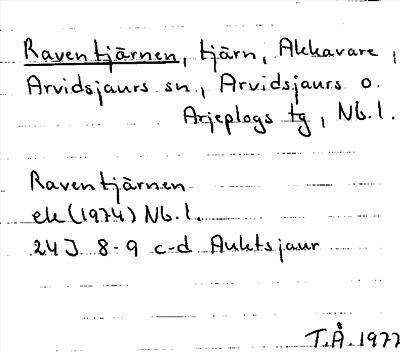 Raventjärnen, tjärn, Akkavare,
Arvidsjaurs sn., Arvidsjaurs o.
Arjeplogs tg, Nb.l.
Raventjärnen
ek (1974) Nb.l.
24J 8-9 c-d Auktsjaur
T.Å. 1977